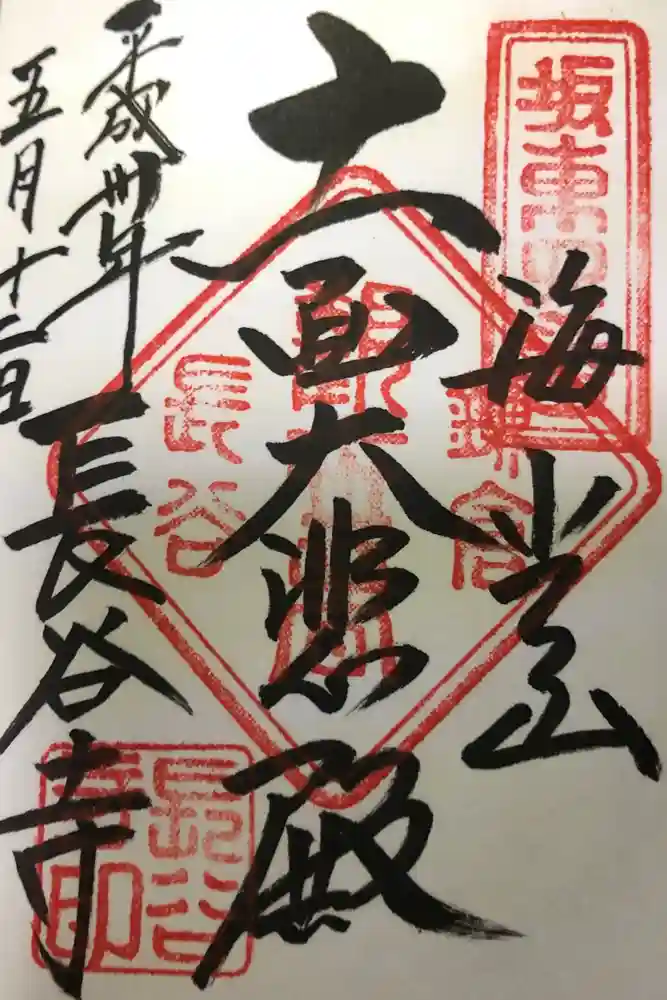 坂東
海光山
鎌倉
十一面大悲殿
長谷
平成卅年
五月十二日
長谷寺
長谷
寺印